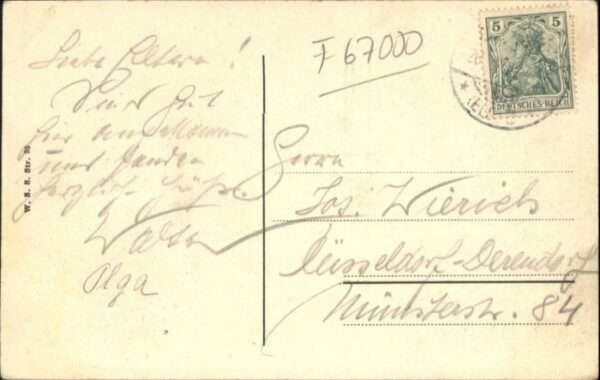 Liebe Eltern!
Sind gut
hier angekommen
und senden
herzlich Grüße.
Walter
Olga
W. S. S. Str. 39
F 67000
5 5
DEUTSCHES REICH
Herrn
Jos. Wierich
Düsseldorf-Derendorf
Münsterstr. 84